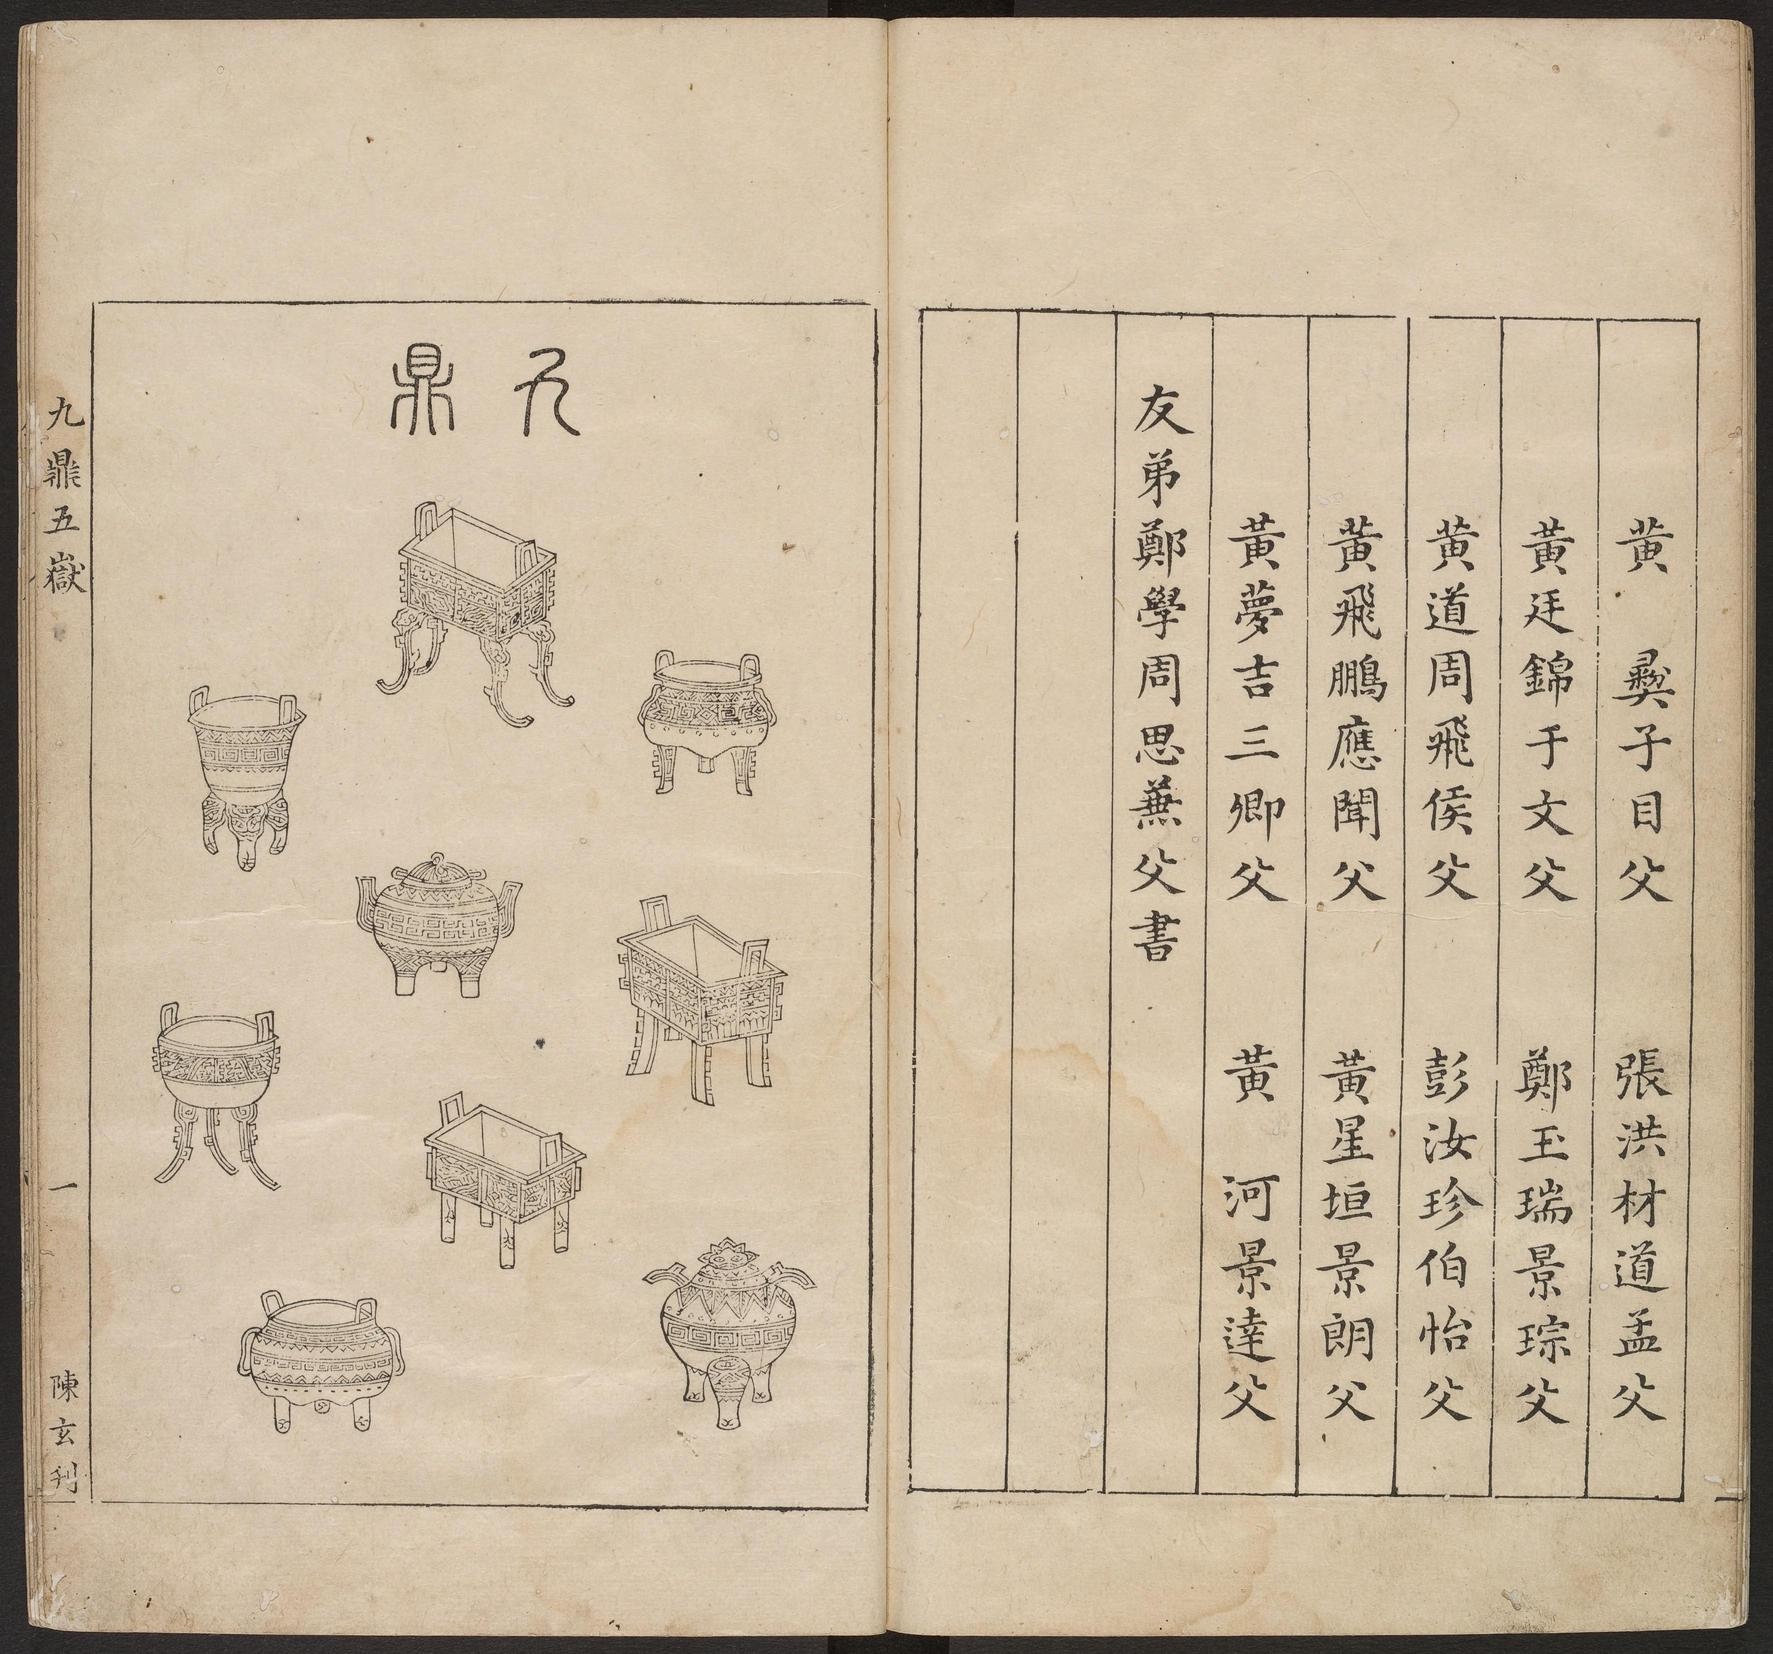 黃　彜子目父　張洪材道孟父
黃廷錦于文父　鄭玉瑞景琮父
黃道周飛侯父　彭汝珍伯怡父
黃飛鵬應聞父　黃星垣景朗父
黃夢吉三卿父　黃　河景達父
友弟鄭學周思蕪父書
九鼎
九鼎五嶽　一　陳玄刋